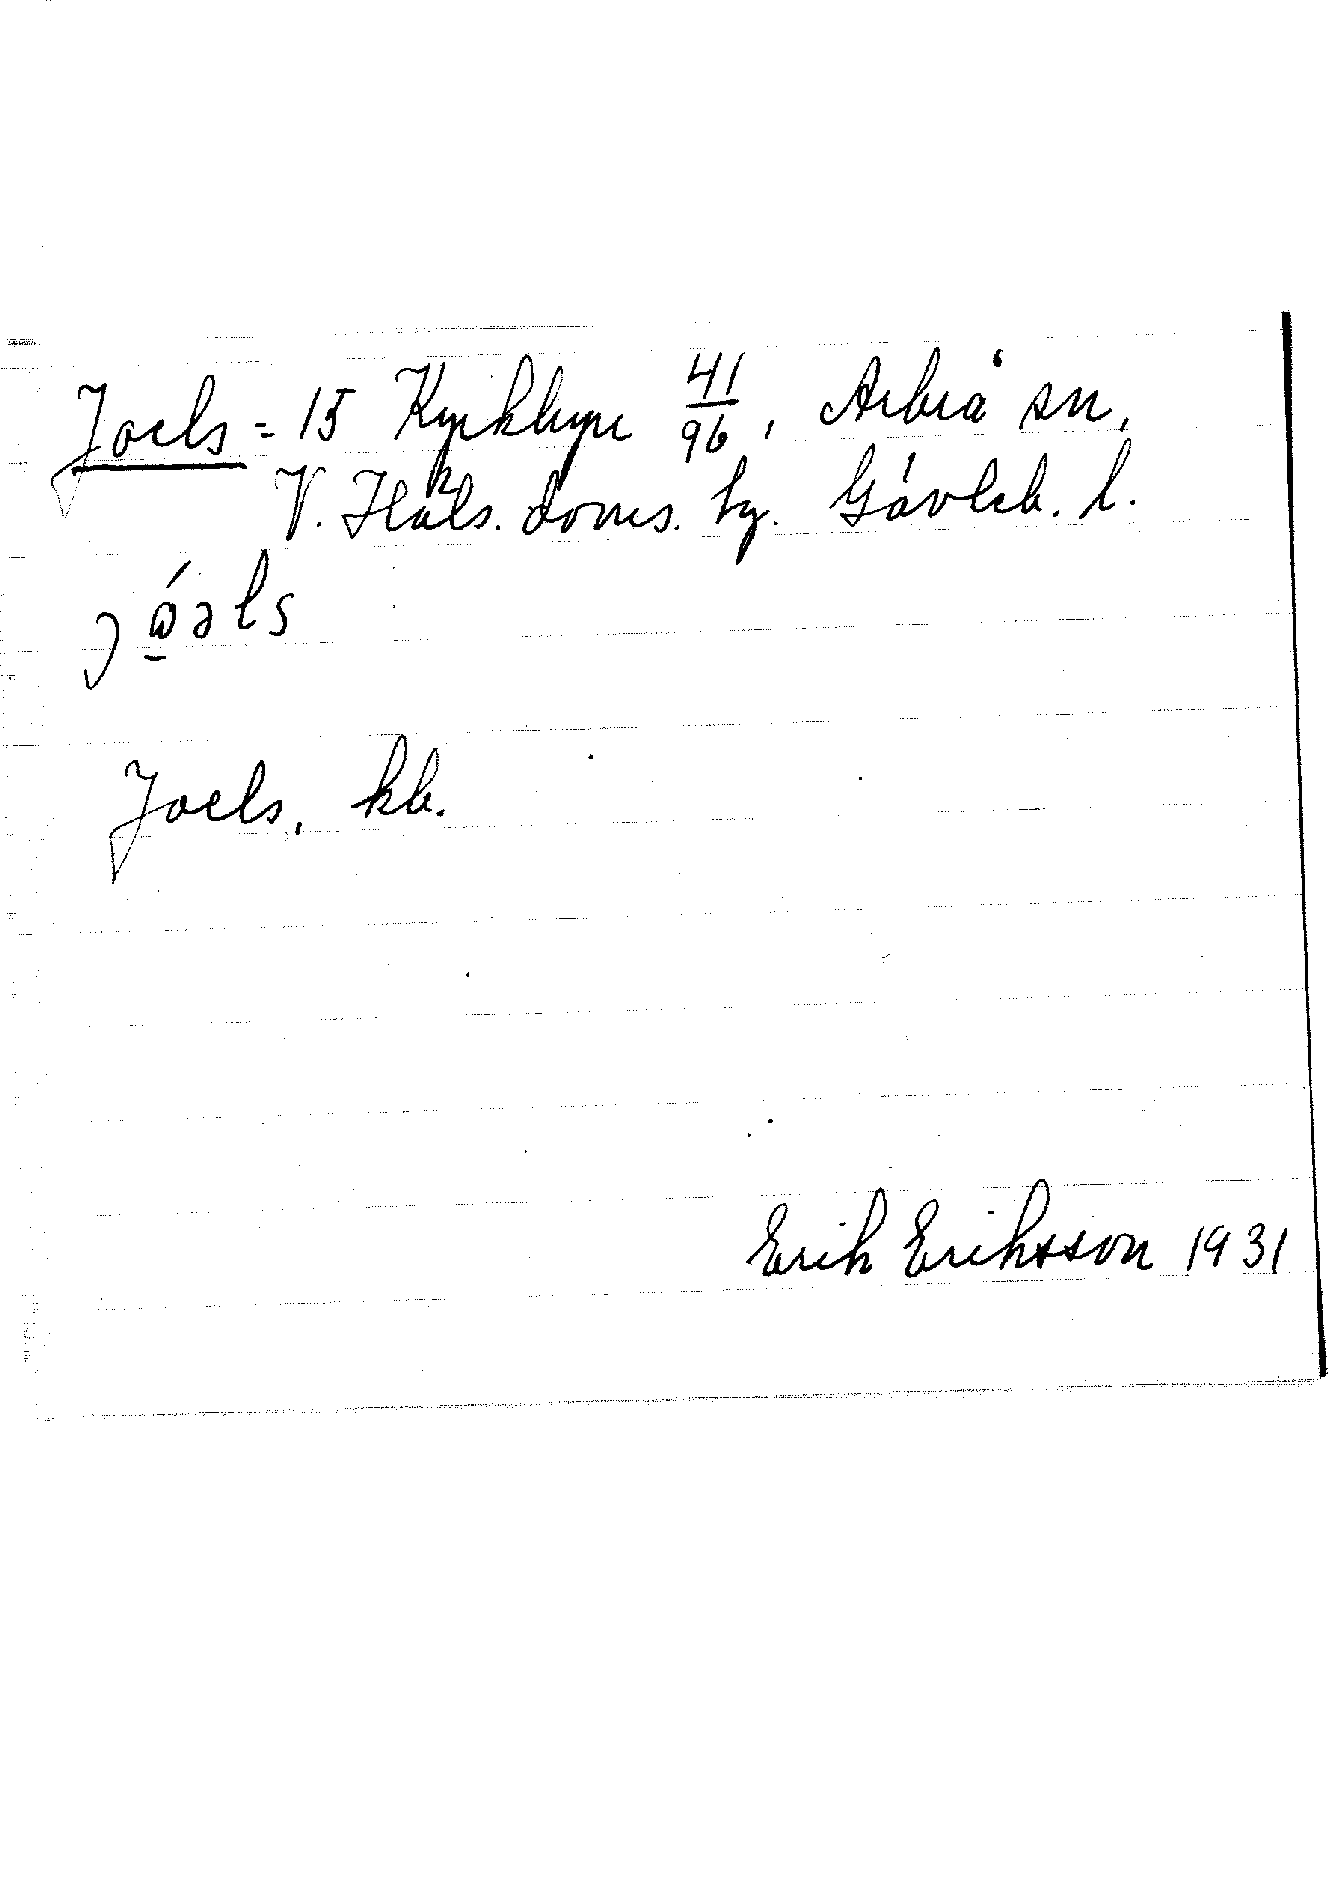 Joels = 15 Kyrkbyn 41/96, Arbrå sn,
V. Häls. doms. hg. Gävleb. l.
Joels, kb.
Erik Eriksson 1931